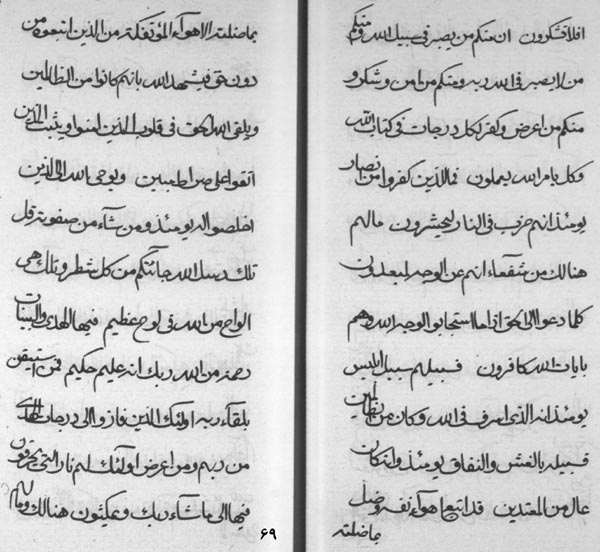 افلا تشكرون ان منكم من يصبر في سبيل الله ومنكم
من لا يصبر في الله ربه ومنكم من امن وشكر و
منكم من اعرض وكفر لكل درجات في كتاب الله
وكل بامر الله يعملون فما للذين كفروا من انصار
يومئذ انهم حزب في النار ليحشرون مالهم
هنالك من شفعاء انهم عن الوجه لمبعدون
كلما دعوا الى الحق اذا ما استجابوا لوجه الله وهم
بايات الله كافرون فسبيلهم سبيل ابليس
يومئذ انه الذي اسرف في الله وكان من الظالمين
قبيله بالغش والنفاق يومئذ وانه كان
عال من المعتدين قد اتبع اهوآء نفسه وضل
بما ضلته
بما ضلته الاهوآء المؤتفكة من الذين اتبعوه من
دون حق فيشهد الله بانهم كانوا من الظالمين
ويلقى الله الحق في قلوب الذين امنوا ويثبت الذين
اتقوا على صراط مبين ويوحى الله الى الذين
اخلصوا له يومئذ ومن شآء من صفوته قل
تلك رسل الله جائتكم من كل شطر وتلك هي
الواح من الله في لوح عظيم فيها الهدى والبينات
رحمة من الله ربك انه عليم حكيم فمن استيقن
بلقآء ربه اولئك الذين فازوا الى درجات الهدى
من ربهم ومن اعرض اولئك لهم نار التي يحرقون
فيها الى ما شآء ربك ويمكثون هنالك وما لهم
٦٩